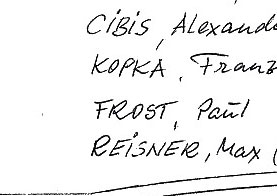 CIBIS, Alexand
KOPKA, Franz
FROST, Paul
REISNER, Max (